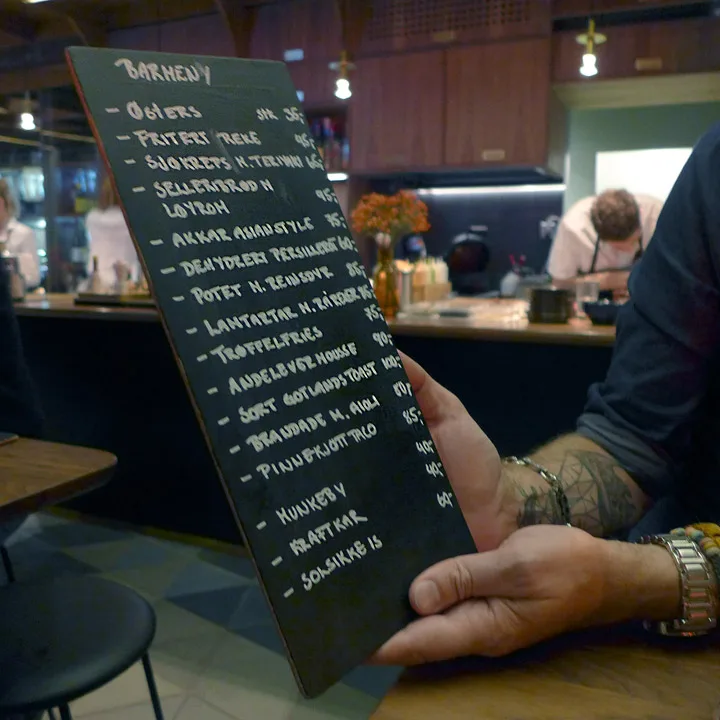 BARMENY
- ØSTERS STK 35,-
- FRITERT REKE 45,-
- SJØKREPS M. TERIYAKI 65,-
- SELLERIBRØD M
LØYROM 95,-
- AKKAR ASIAN STYLE 75,-
- DEHYDRERT PERSILLEROT 60,-
- POTET M. REINSDYR 85,-
- LAMTARTAR M. RÅRØRDE
- TRØFFELFRIES 75,-
- ANDELEVERMOUSSE 90,-
- SORT GOTLANDSTOAST 100,-
- BRANDADE M. AIOLI 80,-
- PINNEKJØTTTACO 85,-
- MUNKEBY 40,-
- KRAFTKAR 40,-
- SOLSIKKEIS 60,-